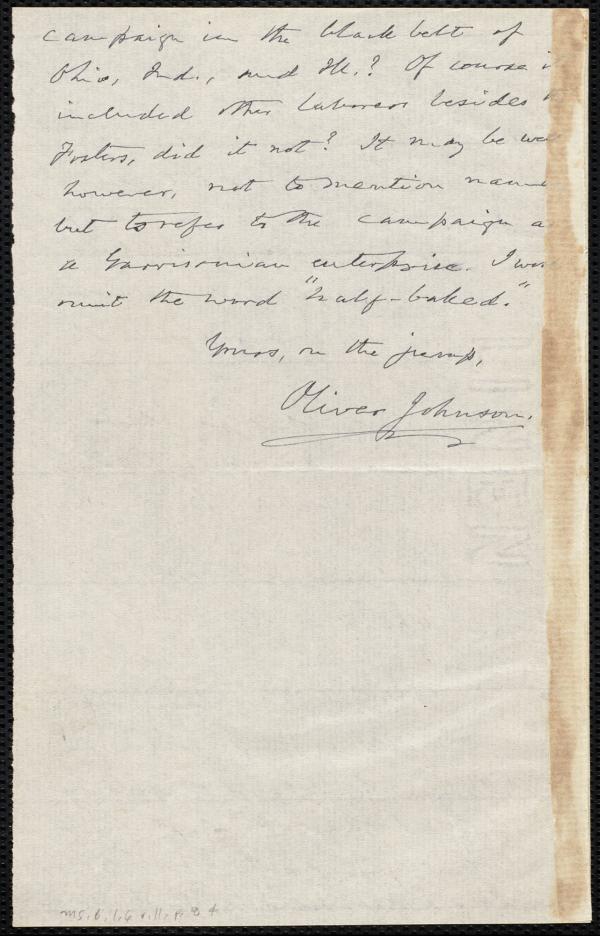 campaign in the black belt of
Ohio, Ind., and Ill.? Of course i
included other laborers besides
Fosters, did it not? It may be we
however, not to mention name
but to refer to the campaign a
a Garrisonian enterprise. I wou
omit the word "half-baked."
Yours, on the jump,
Oliver Johnson.